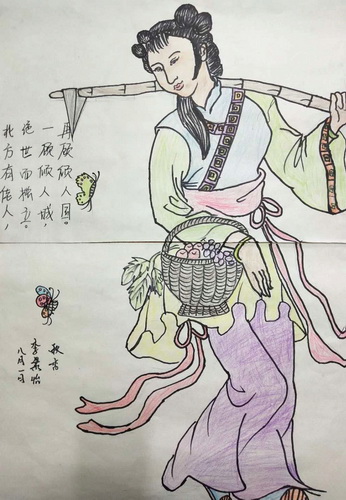 北方有佳人，
绝世而独立。
一顾倾人城，
再顾倾人国。
八月一日